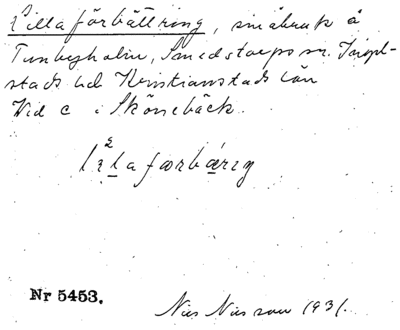 Lilla förbättring, småbruk å
Tunbyholm, Smedstorps sn. Ingel-
stads hd Kristianstads län
Vid c i Skönebäck.
Nr 5453.
Nils Nilsson 1931.